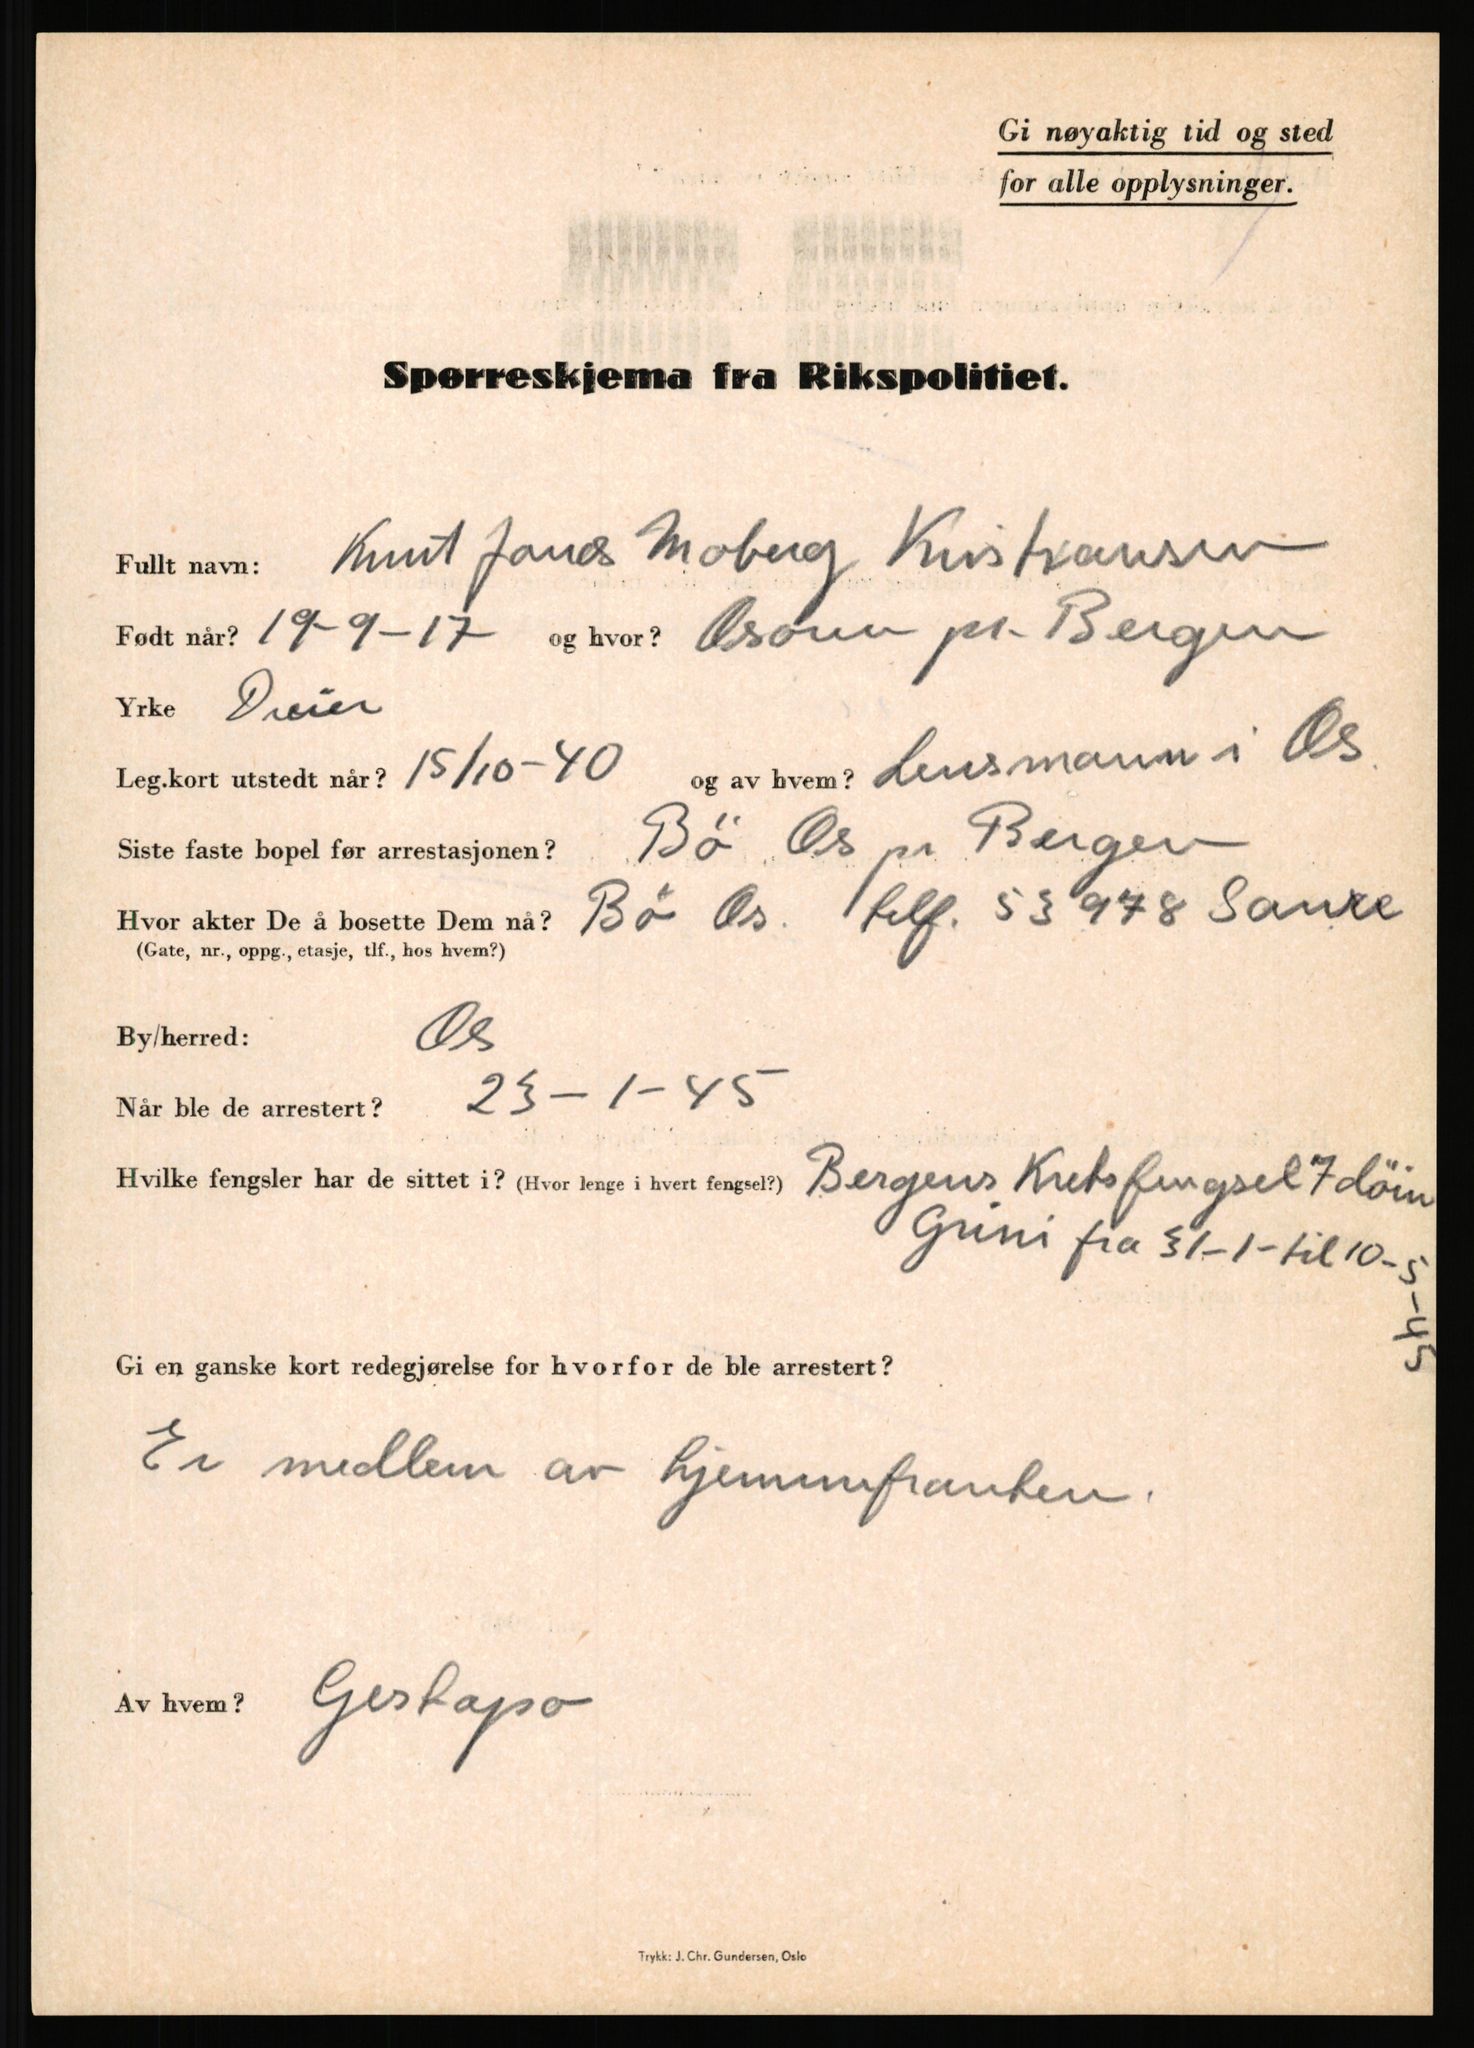 Gi nøyaktig tid og sted
for alle opplysninger.
Spørreskjema fra Rikspolitiet.
Fullt navn: Knut Jonas Moberg Kristiansen
Født når? 19-9-17 og hvor? Osøren pr. Bergen
Yrke Dreier
Leg.kort utstedt når? 15/10-40 og av hvem? Lensmann i Os.
Siste faste bopel før arrestasjonen? Bö Os pr Bergen
Hvor akter De å bosette Dem nå? Bö Os. telf. 53978
(Gate, nr., oppg., etasje, tlf., hos hvem?)
By/herred: Os
Når ble de arrestert? 23-1-45
Hvilke fengsler har de sittet i? (Hvor lenge i hvert fengsel?) Bergens Kretsfengsel 7 döin
Grini fra 31-1- til 10-5-45
Gi en ganske kort redegjørelse for hvorfor de ble arrestert?
Er medlem av hjemmefronten.
Av hvem? Gestapo
Trykk: J. Chr. Gundersen, Oslo